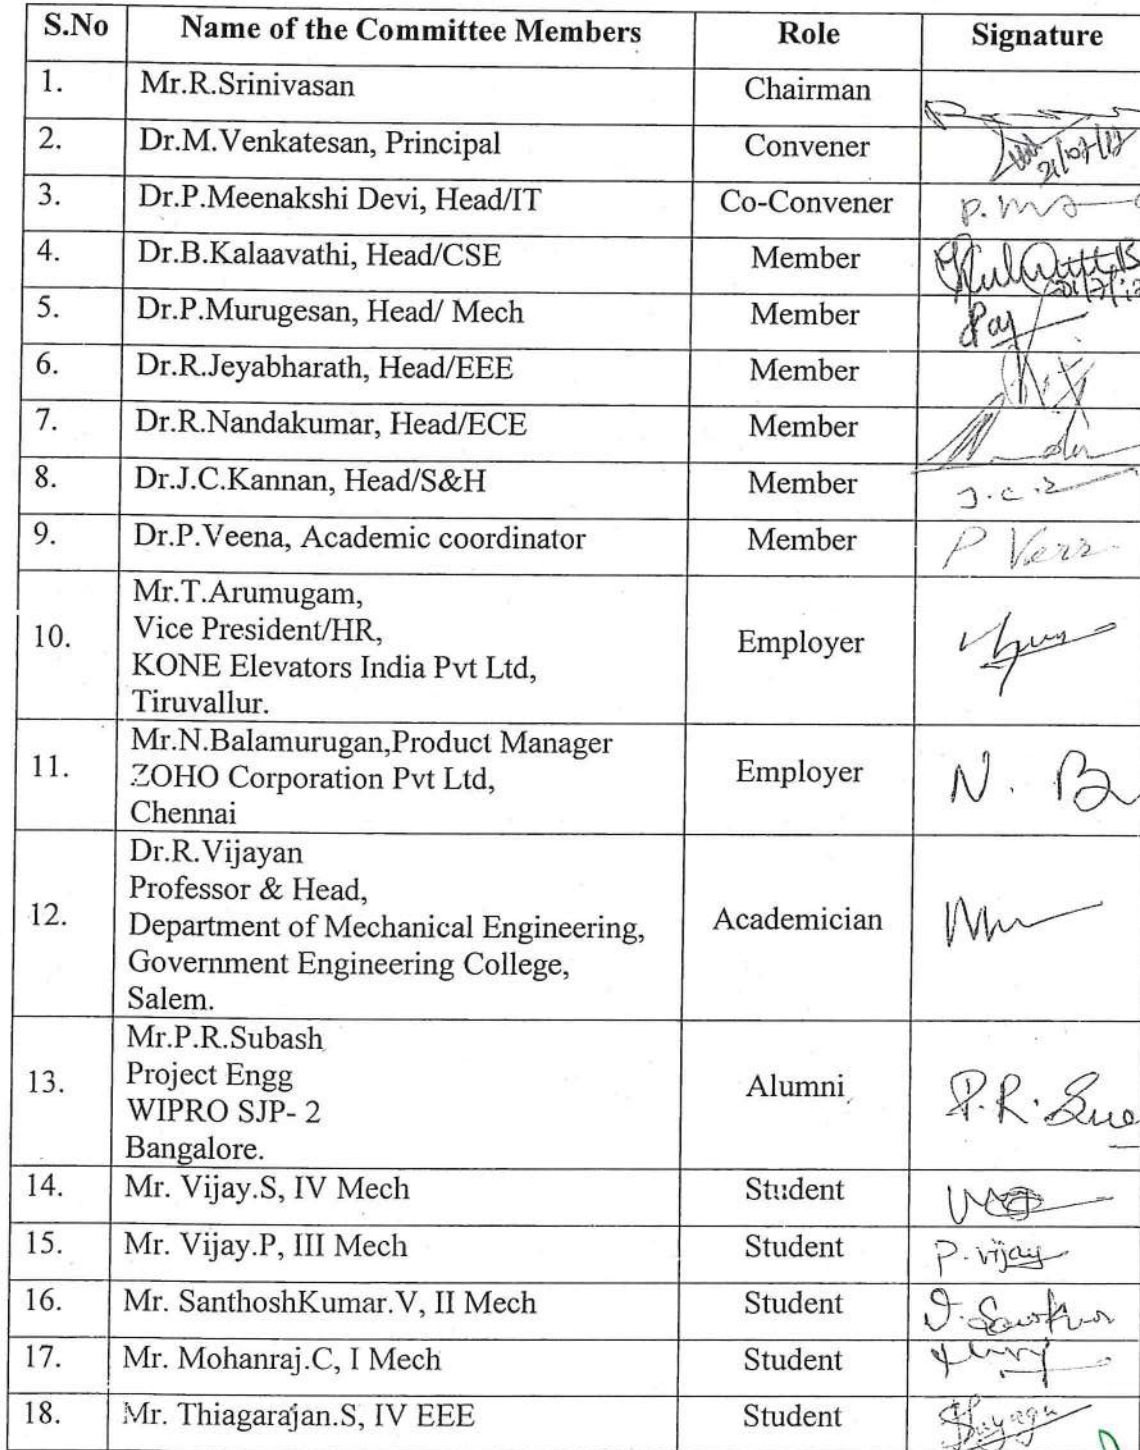 S.No Name of the Committee Members Role Signature
1. Mr.R.Srinivasan Chairman
2. Dr.M.Venkatesan, Principal Convener
3. Dr.P.Meenakshi Devi, Head/IT Co-Convener
4. Dr.B.Kalaavathi, Head/CSE Member
5. Dr.P.Murugesan, Head/ Mech Member
6. Dr.R.Jeyabharath, Head/EEE Member
7. Dr.R.Nandakumar, Head/ECE Member
8. Dr.J.C.Kannan, Head/S&H Member
9. Dr.P.Veena, Academic coordinator Member
10. Mr.T.Arumugam,
Vice President/HR,
KONE Elevators India Pvt Ltd,
Tiruvallur.
Employer
11. Mr.N.Balamurugan,Product Manager
ZOHO Corporation Pvt Ltd,
Chennai
Employer
N. B
12. Dr.R.Vijayan
Professor & Head,
Department of Mechanical Engineering,
Government Engineering College,
Salem.
Academician
13. Mr.P.R.Subash
Project Engg
WIPRO SJP- 2
Bangalore.
Alumni
P.R.
14. Mr. Vijay.S, IV Mech Student
15. Mr. Vijay.P, III Mech Student P. vijay
16. Mr. SanthoshKumar.V, II Mech Student
17. Mr. Mohanraj.C, I Mech Student
18. Mr. Thiagarajan.S, IV EEE Student